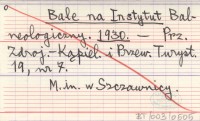 Bale na Instytut Bal-
neologiczny. 1930. — Prz.
Zdroj.-Kąpiel. i Przew. Turyst.
19, nr 7.
M. in. w Szczawnicy.